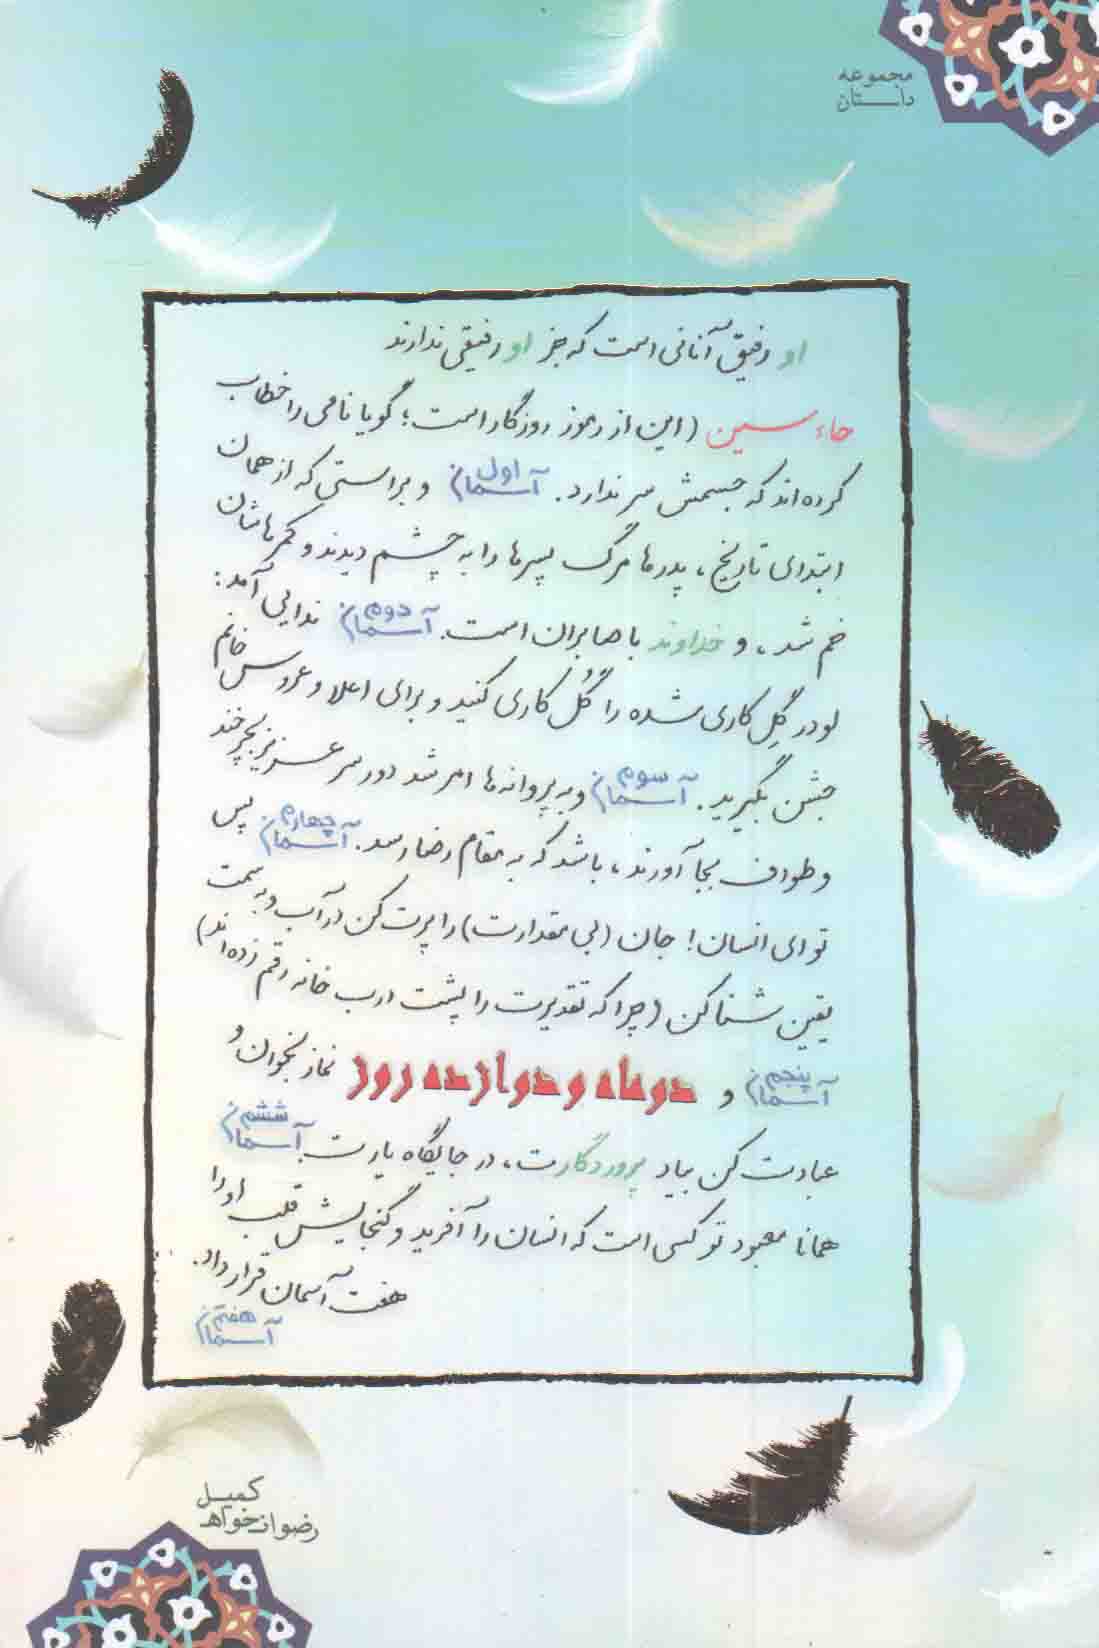 مجموعه
داستان
او رفیق آنانی است که جز او رفیقی ندارند
حاء سین (این از رموز روزگار است؛ گویا نامی را خطاب
کرده‌اند که جسمش سر ندارد. آسمان اول و براستی که از همان
ابتدای تاریخ، پدرها مرگ پسرها را به چشم دیدند و کمرهاشان
خم شد، و خداوند با صابران است. آسمان دوم ندایی آمد:
لودر گِل کاری شده را گُل کاری کنید و برای اعلا و عروس خانم
جشن بگیرید. آسمان سوم و به پروانه‌ها امر شد دور سر عزیز بچرخند
و طواف بجا آورند، باشد که به مقام رضا رسد. آسمان چهارم پس
تو ای انسان! جان (بی مقدارت) را پرت کن در آب و به سمت
یقین شنا کن (چرا که تقدیرت را پشت درب خانه رقم زده‌اند)
آسمان پنجم و دو ماه و دوازده روز نماز بخوان و
عبادت کن بیاد پروردگارت، در جایگاه یارت. آسمان ششم
همانا معبود تو کسی است که انسان را آفرید و گنجایش قلب او را
هفت آسمان قرار داد.
آسمان هفتم
کمیل
رضوان‌خواه